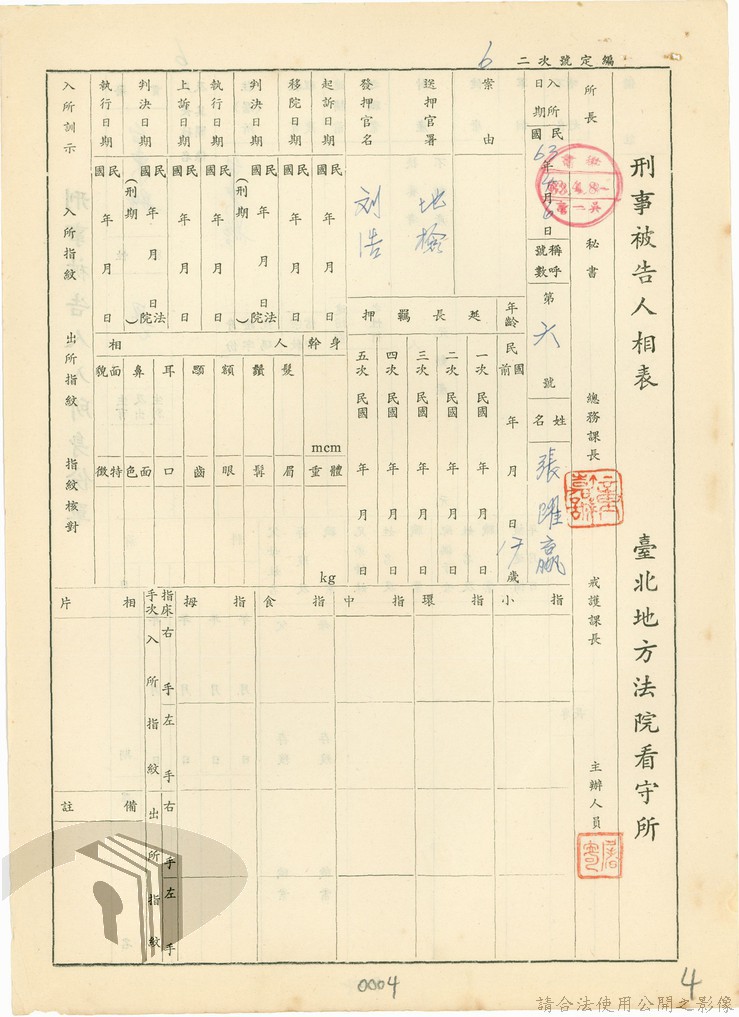 編定號次二 6
刑事被告人相表 臺北地方法院看守所
所長 秘書 總務課長 戒護課長 主辦人員
入所日期 民國63年4月6日
稱呼號數 第六號
姓名 張躍贏
年齡 民國前 年 月 日 17歲
案由
送押官署 地檢
發押官名 刘浩
延長羈押
一次 民國 年 月 日
二次 民國 年 月 日
三次 民國 年 月 日
四次 民國 年 月 日
五次 民國 年 月 日
起訴日期 民國 年 月 日
移院日期 民國 年 月 日
判決日期 民國 年 月 日 (刑期 法院)
執行日期 民國 年 月 日
上訴日期 民國 年 月 日
判決日期 民國 年 月 日 (刑期 法院)
執行日期 民國 年 月 日
身幹 mcm
體重 kg
人相
髮 鬚 額 顋 耳 鼻 面貌
眉 髯 眼 齒 口 面色 特徵
入所訓示 入所指紋 出所指紋 指紋核對
小指 環指 中指 食指 拇指 指床手次
右手 左手 入所指紋
右手 左手 出所指紋
相片
備註
0004
4
請合法使用公開之影像